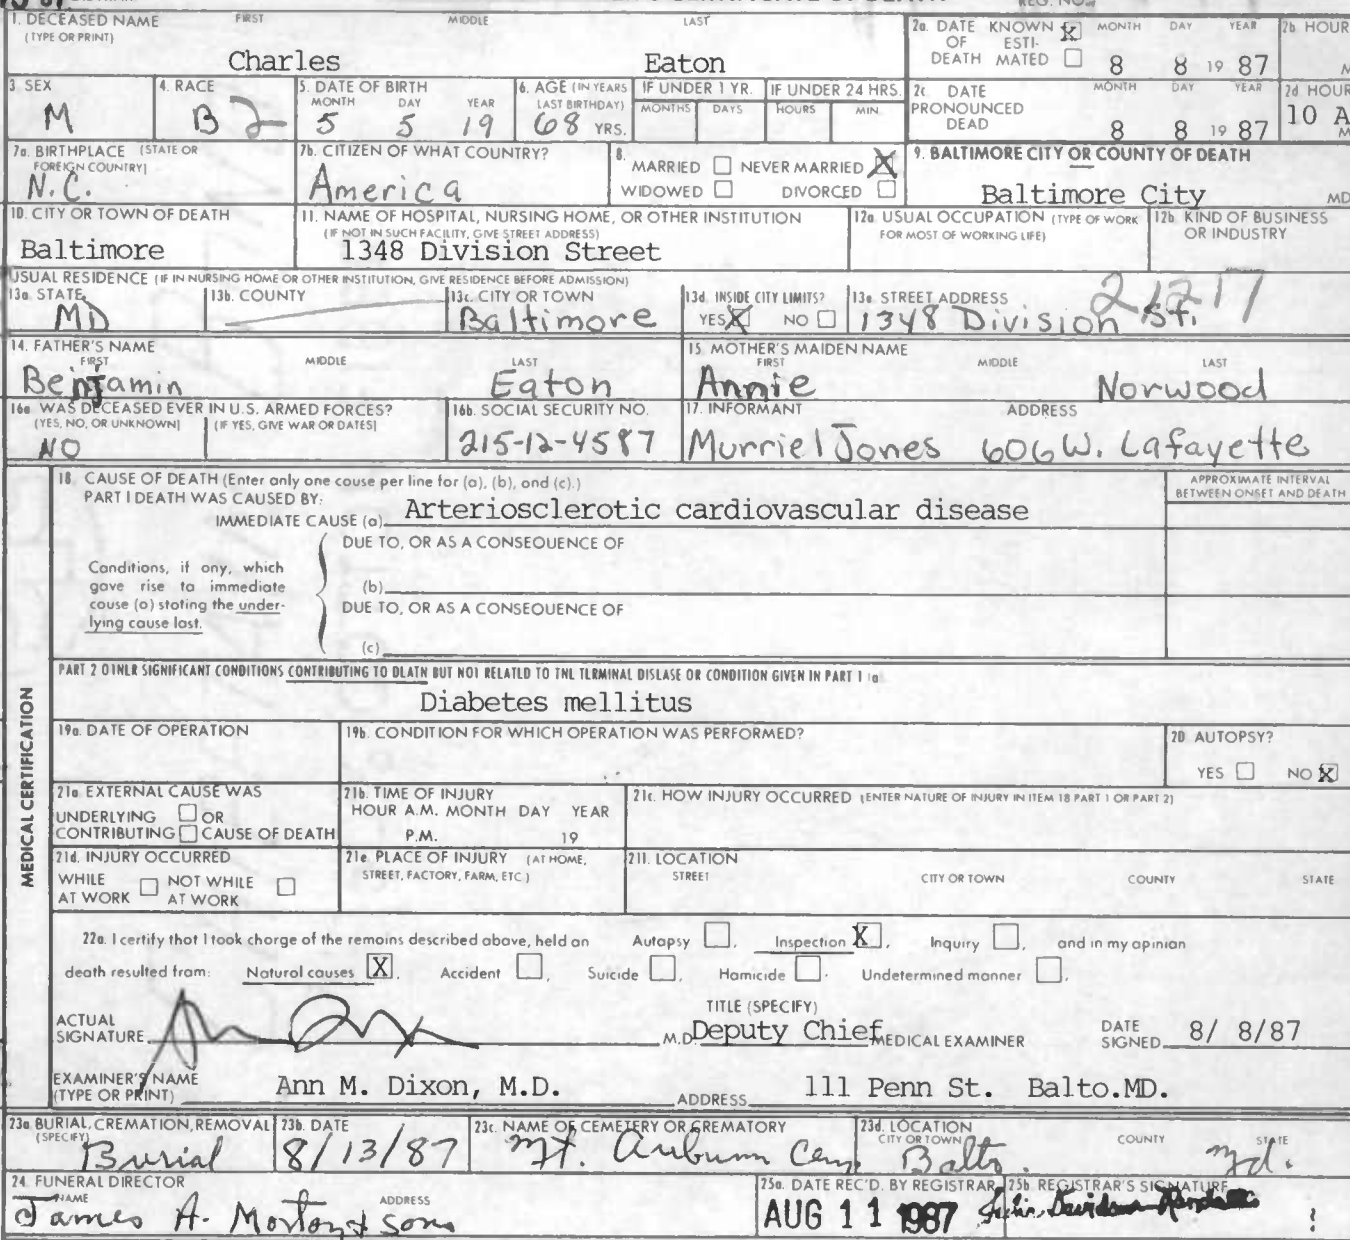 1. DECEASED NAME FIRST MIDDLE LAST
(TYPE OR PRINT)
Charles Eaton
2a. DATE OF DEATH KNOWN X ESTIMATED MONTH DAY YEAR
8 8 19 87
2b. HOUR
M
3. SEX
M
4. RACE
B 2
5. DATE OF BIRTH
MONTH DAY YEAR
5 5 19
6. AGE (IN YEARS LAST BIRTHDAY)
68 YRS.
IF UNDER 1 YR.
MONTHS DAYS
IF UNDER 24 HRS.
HOURS MIN.
2c. DATE PRONOUNCED DEAD MONTH DAY YEAR
8 8 19 87
2d HOUR
10 A
M
7a. BIRTHPLACE (STATE OR FOREIGN COUNTRY)
N.C.
7b. CITIZEN OF WHAT COUNTRY?
America
8.
MARRIED NEVER MARRIED X
WIDOWED DIVORCED
9. BALTIMORE CITY OR COUNTY OF DEATH
Baltimore City MD
10. CITY OR TOWN OF DEATH
Baltimore
11. NAME OF HOSPITAL, NURSING HOME, OR OTHER INSTITUTION
(IF NOT IN SUCH FACILITY, GIVE STREET ADDRESS)
1348 Division Street
12a. USUAL OCCUPATION (TYPE OF WORK FOR MOST OF WORKING LIFE)
12b. KIND OF BUSINESS OR INDUSTRY
USUAL RESIDENCE (IF IN NURSING HOME OR OTHER INSTITUTION, GIVE RESIDENCE BEFORE ADMISSION)
13a. STATE
MD
13b. COUNTY
13c. CITY OR TOWN
Baltimore
13d. INSIDE CITY LIMITS?
YES X NO
13e. STREET ADDRESS 21217
1348 Division St.
14. FATHER'S NAME
FIRST MIDDLE LAST
Benjamin Eaton
15. MOTHER'S MAIDEN NAME
FIRST MIDDLE LAST
Annie Norwood
16a. WAS DECEASED EVER IN U.S. ARMED FORCES?
(YES, NO, OR UNKNOWN) (IF YES, GIVE WAR OR DATES)
NO
16b. SOCIAL SECURITY NO.
215-12-4587
17. INFORMANT ADDRESS
Murriel Jones 606 W. Lafayette
MEDICAL CERTIFICATION
18. CAUSE OF DEATH (Enter only one cause per line for (a), (b), and (c).)
PART I DEATH WAS CAUSED BY:
IMMEDIATE CAUSE (a) Arteriosclerotic cardiovascular disease
APPROXIMATE INTERVAL
BETWEEN ONSET AND DEATH
DUE TO, OR AS A CONSEQUENCE OF
Conditions, if any, which
gave rise to immediate
cause (a) stating the under-
lying cause last.
(b)
DUE TO, OR AS A CONSEQUENCE OF
(c)
PART 2 OTHER SIGNIFICANT CONDITIONS CONTRIBUTING TO DEATH BUT NOT RELATED TO THE TERMINAL DISEASE OR CONDITION GIVEN IN PART 1 (a)
Diabetes mellitus
19a. DATE OF OPERATION
19b. CONDITION FOR WHICH OPERATION WAS PERFORMED?
20. AUTOPSY?
YES NO X
21a. EXTERNAL CAUSE WAS
UNDERLYING OR
CONTRIBUTING CAUSE OF DEATH
21b. TIME OF INJURY
HOUR A.M. MONTH DAY YEAR
P.M. 19
21c. HOW INJURY OCCURRED (ENTER NATURE OF INJURY IN ITEM 18 PART 1 OR PART 2)
21d. INJURY OCCURRED
WHILE AT WORK NOT WHILE AT WORK
21e. PLACE OF INJURY (AT HOME,
STREET, FACTORY, FARM, ETC.)
21f. LOCATION
STREET CITY OR TOWN COUNTY STATE
22a. I certify that I took charge of the remains described above, held an Autopsy , Inspection X , Inquiry , and in my opinion
death resulted from: Natural causes X , Accident , Suicide , Homicide . Undetermined manner .
ACTUAL
SIGNATURE
M.D.
TITLE (SPECIFY)
Deputy Chief MEDICAL EXAMINER
DATE
SIGNED 8/ 8/87
EXAMINER'S NAME
(TYPE OR PRINT) Ann M. Dixon, M.D.
ADDRESS 111 Penn St. Balto.MD.
23a. BURIAL, CREMATION, REMOVAL
(SPECIFY)
Burial
23b. DATE
8/13/87
23c. NAME OF CEMETERY OR CREMATORY
Mt. Auburn Cem
23d. LOCATION
CITY OR TOWN COUNTY STATE
Balto. Md.
24. FUNERAL DIRECTOR
NAME ADDRESS
James A. Morton & sons
25a. DATE REC'D. BY REGISTRAR
AUG 11 1987
25b. REGISTRAR'S SIGNATURE